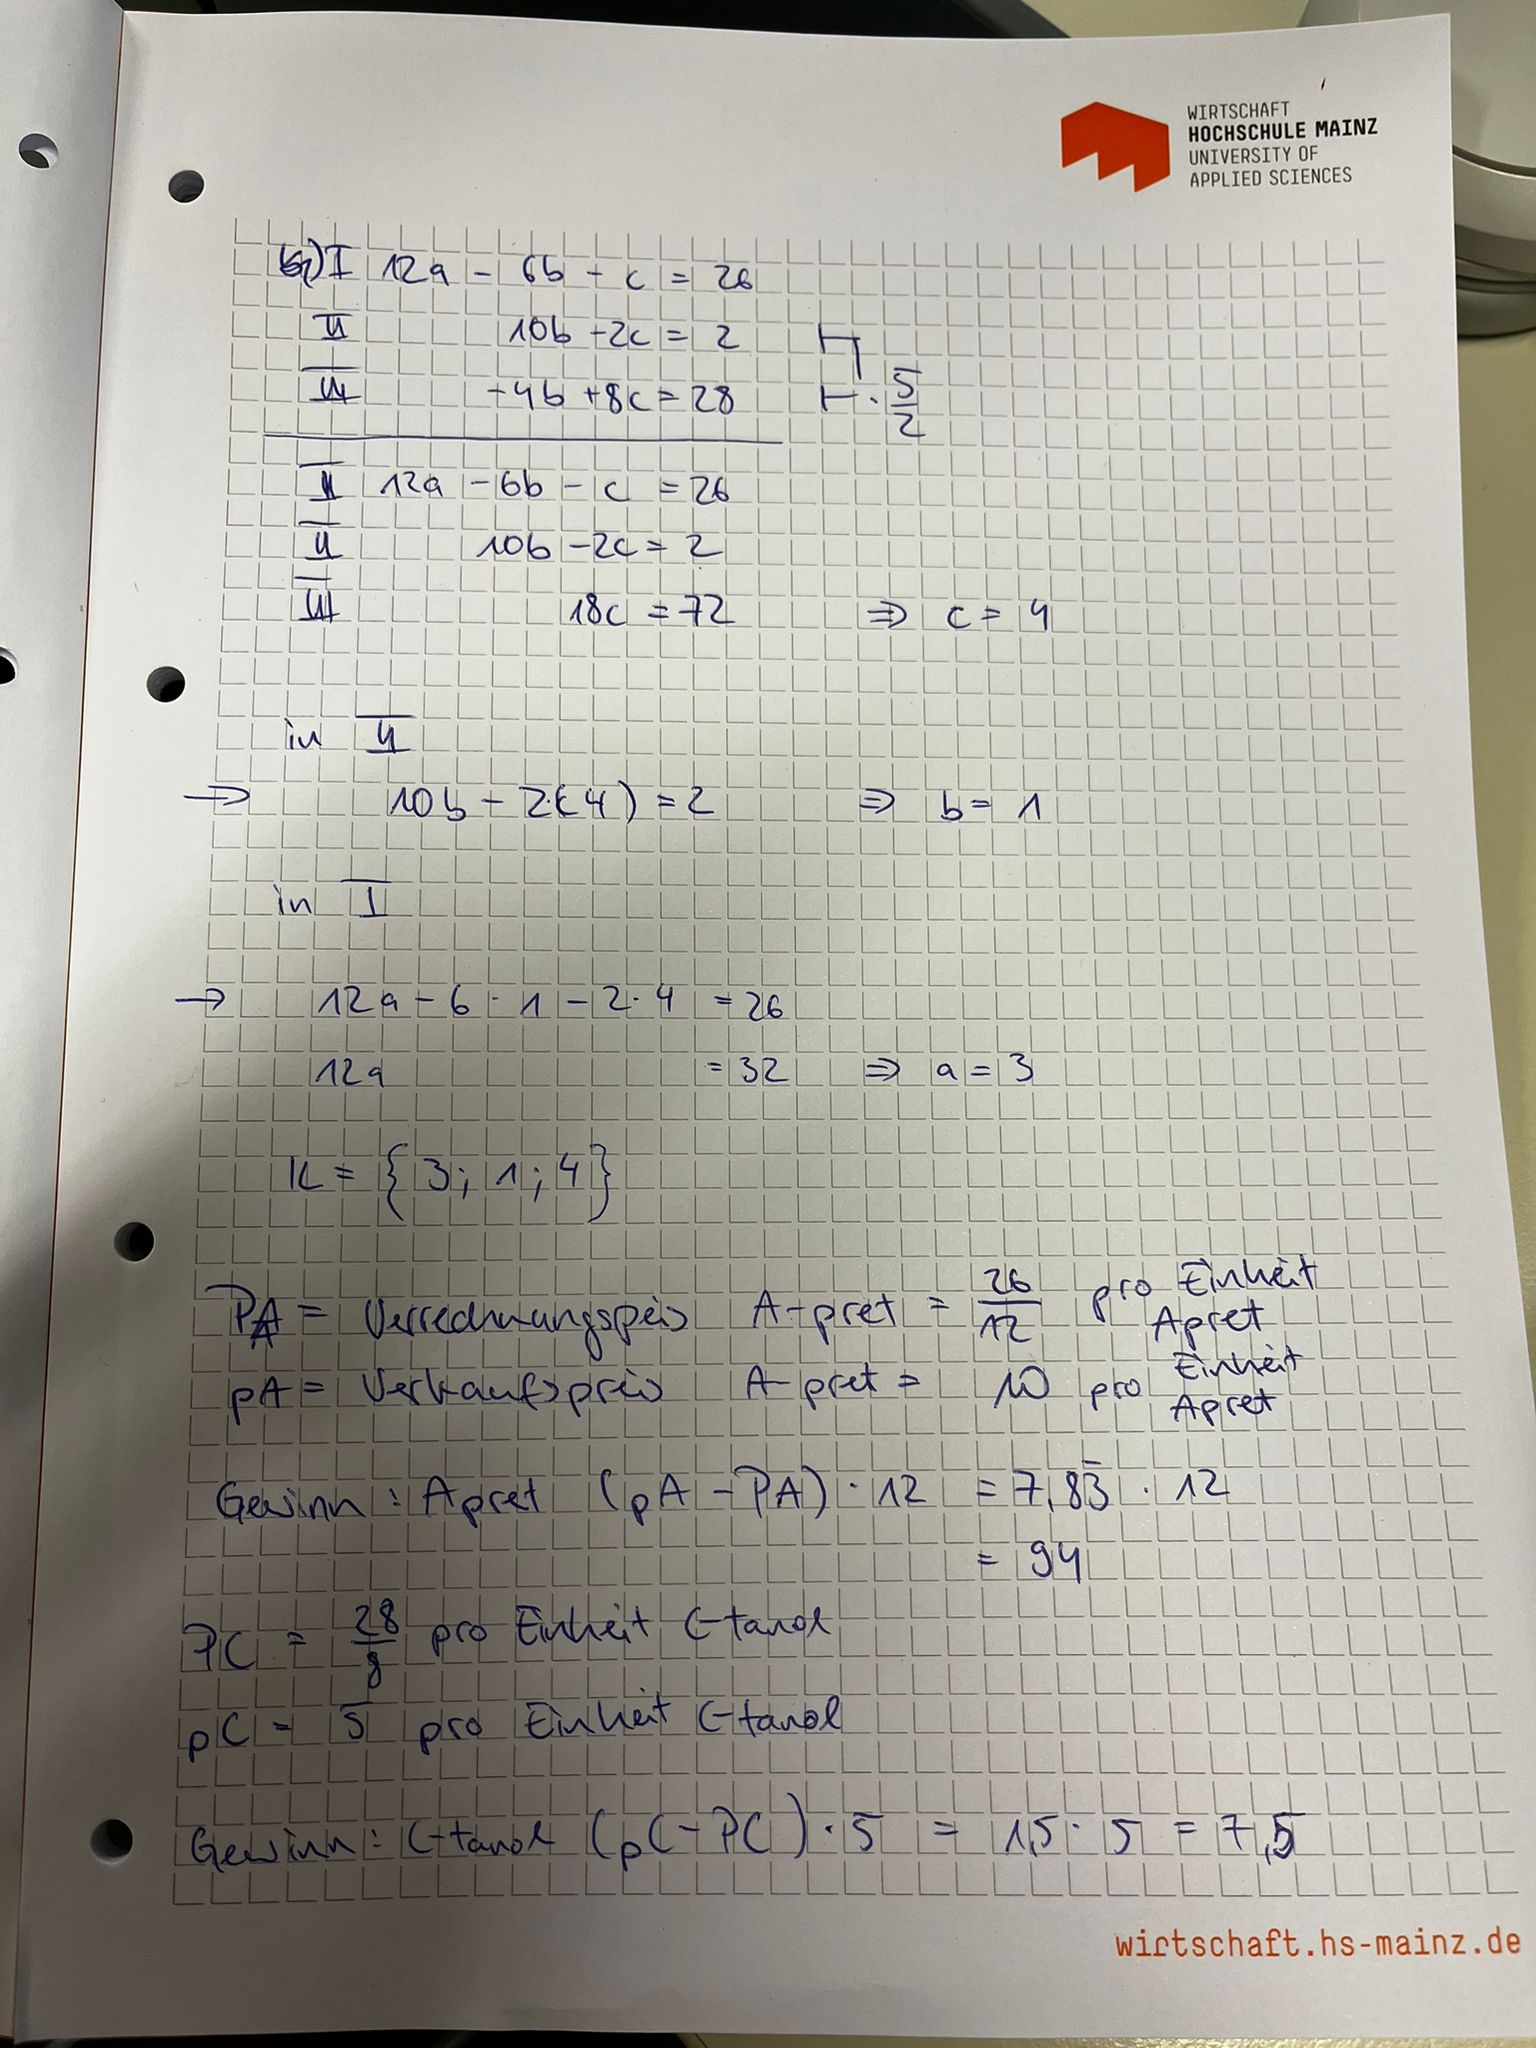 WIRTSCHAFT
HOCHSCHULE MAINZ
UNIVERSITY OF
APPLIED SCIENCES
I 12a - 6b - c = 26
II 10b - 2c = 2
III -4b + 8c = 28 | · 5/2
I 12a - 6b - c = 26
II 10b - 2c = 2
III 18c = 72 ⇒ c = 4
in II
→ 10b - 2·(4) = 2 ⇒ b = 1
in I
→ 12a - 6 · 1 - 2 · 4 = 26
12a = 32 ⇒ a = 3
IL = {3; 1; 4}
PA = Verrechnungspreis A-pret = 26/12 pro Einheit Apret
pA = Verkaufspreis A-pret = 10 pro Einheit Apret
Gewinn: Apret (pA - PA) · 12 = 7,83̅ · 12
= 94
PC = 28/8 pro Einheit C-tanol
pC = 5 pro Einheit C-tanol
Gewinn: C-tanol (pC - PC) · 5 = 1,5 · 5 = 7,5
wirtschaft.hs-mainz.de